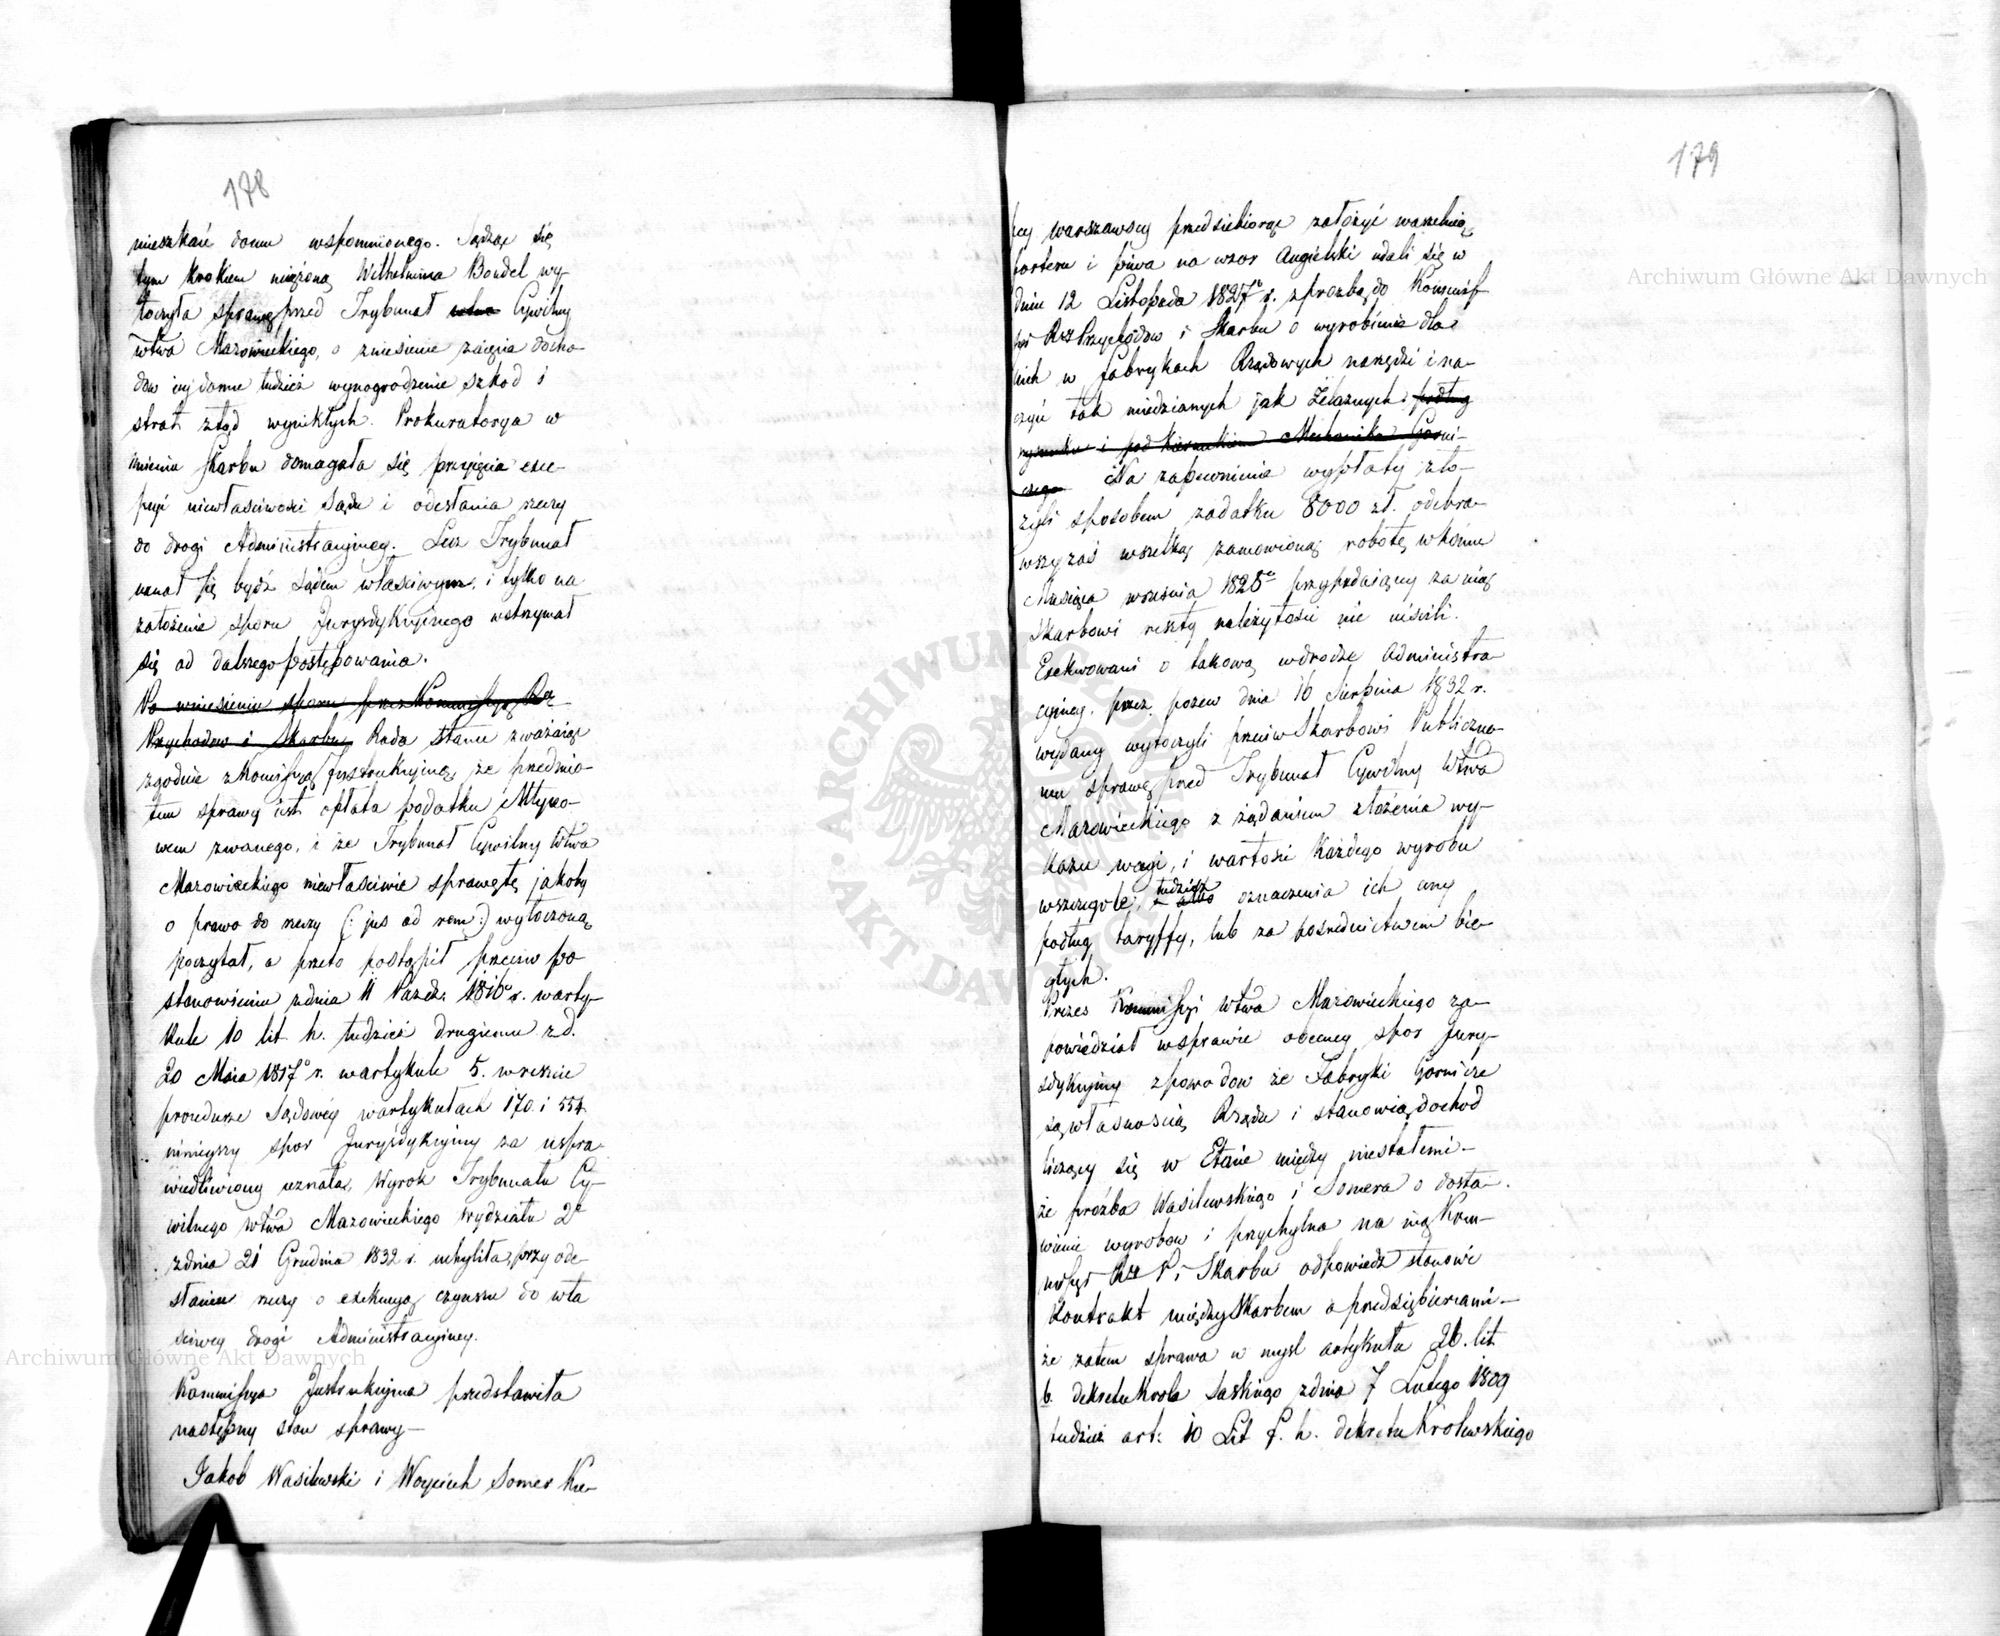 178
mieszkań domu wspomnionego. Sądząc się
tym krokiem uciążoną Wilhelmina Boudel wy-
toczyła sprawę przed Trybunał Cywilny
Wtwa Mazowieckiego, o zniesienie zaięcia docho-
dów iey domu tudzież wynagrodzenie szkod i
strat ztąd wynikłych. Prokuratorya w
imieniu Skarbu domagała się przyięcia exce-
pcyi niewłaściwości Sądu i odesłania rzeczy
do drogi Administracyjney. Lecz Trybunał
uznał się bydź Sądem właściwym, i tylko na
założenie sporu Jurysdykcyjnego wstrzymał
się od dalszego postępowania.
Po wniesieniu sporu przez Kommissyą Rz
Przychodow i Skarbu Rada Stanu zważaiąc
zgodnie z Komissyą Instrukcyjną, że przedmio-
tem sprawy iest opłata podatku Młyno-
wem zwanego, i że Trybunał Cywilny Wtwa
Mazowieckiego niewłaściwie sprawę tę jakoby
o prawo do rzeczy (: jus ad rem :) wytoczoną
poczytał, a przeto postąpił przeciw po
stanowieniu z dnia 11 Paźdź. 1816º r. w arty-
kule 10 lit. h. tudzież drugiemu z d.
20 Maia 1817º r. w artykule 5. wreszcie
procedurze Sądowéy w artykułach 170. i 554
ninieyszy spor Jurysdykcyjny za uspra-
wiedliwiony uznała, Wyrok Trybunału Cy-
wilnego Wtwa Mazowieckiego Wydziału 2º
z dnia 21 Grudnia 1832 r. uchyliła, przy ode-
słaniu rzeczy o exekucyą czynszu do wła
ściwey drogi Administracyjney.
Kommissya Instrukcyjna przedstawiła
następny stan sprawy—
Jakob Wasilewski i Woyciech Somer Ku-
179
pcy warszawscy przedsiebiorąc założyć warzelnią
porteru i piwa na wzor Angielski udali się w
dniu 12 Listopada 1827º r. z prozbą do Kommiss
syi Rz Przychodow i Skarbu o wyrobienie dla
nich w fabrykach Rządowych narzędzi i na-
czyń tak miedzianych jak żelaznych podług
rysunku i pod kierunkiem Mechanika Gorni-
czego Na zapewnienie wypłaty zło-
żyli sposobem zadatku 8000 zł. odebra-
wszy zaś wszelką zamowioną robotę w końcu
Miesiąca września 1828º przypadaiącey za nią
Skarbowi reszty należytości nie uiścili.
Exekwowani o takową w drodze Administra-
cyiney. przez pozew dnia 16 Sierpnia 1832 r.
wydany wytoczyli przeciw Skarbowi Publiczne-
mu sprawę przed Trybunał Cywilny Wtwa
Mazowieckiego z żądaniem złożenia wy-
kazu wagi, i wartości każdego wyrobu
wszczegole, tudzież oznaczenia ich ceny
podług taryffy, lub za pośrednictwem bie-
głych.
Prezes Kommissyi Wtwa Mazowieckiego za-
powiedział w sprawie obecney spor Jury-
sdykcyjny z powodow że Fabryki Gornicze
są własnością Rządu i stanowią dochod
liczący się w Etacie między niestałemi—
że prozba Wasilewskiego i Somera o dosta-
wienie wyrobow i przychylna na nią Kom-
missyi Rz P. i Skarbu odpowiedź stanowi
Kontrakt między Skarbem a przedsiębiercami—
że zatem sprawa w mysl artykułu 26. lit.
b. dekretu Krola Saskiego z dnia 7 Lutego 1809
tudzież art: 10 Lit f. h. dekretu Krolewskiego
Archiwum Główne Akt Dawnych
Archiwum Główne Akt Dawnych
ARCHIWUM GŁÓWNE AKT DAWNYCH